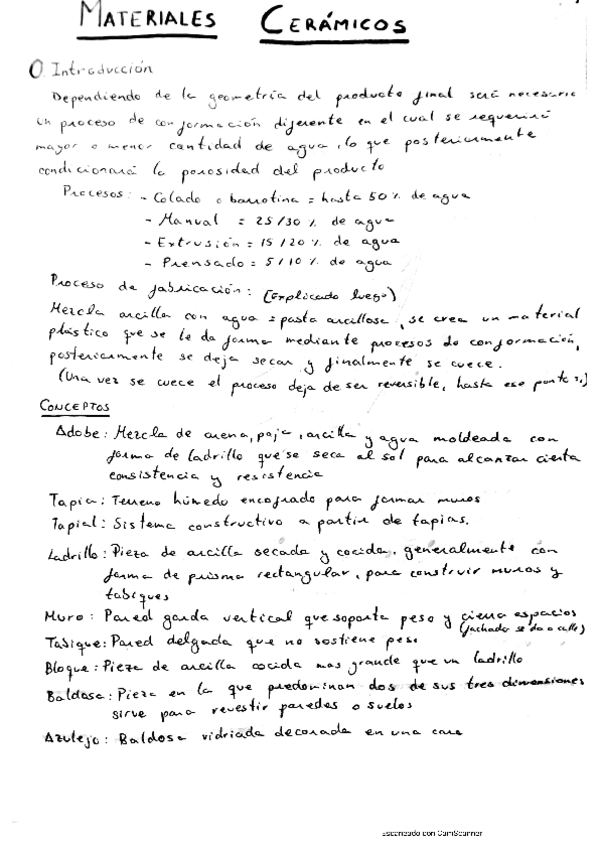 MATERIALES CERÁMICOS
0. Introducción
Dependiendo de la geometría del producto final será necesario
un proceso de conformación diferente en el cual se requerirá
mayor o menor cantidad de agua, lo que posteriormente
condicionará la porosidad del producto
Procesos: - Colado o barrotina = hasta 50% de agua
- Manual = 25/30 % de agua
- Extrusión = 15/20 % de agua
- Prensado = 5/10 % de agua
Proceso de fabricación: (Explicado luego)
Mezcla arcilla con agua = pasta arcillosa, se crea un material
plástico que se le da forma mediante procesos de conformación,
posteriormente se deja secar y finalmente se cuece.
(Una vez se cuece el proceso deja de ser reversible, hasta ese punto sí)
CONCEPTOS
Adobe: Mezcla de arena, paja, arcilla y agua moldeada con
forma de ladrillo que se seca al sol para alcanzar cierta
consistencia y resistencia
Tapia: Terreno húmedo encofrado para formar muros
Tapial: Sistema constructivo a partir de tapias.
Ladrillo: Pieza de arcilla secada y cocida, generalmente con
forma de prisma rectangular, para construir muros y
tabiques
Muro: Pared gorda vertical que soporta peso y cierra espacios
(fachada se da a calle)
Tabique: Pared delgada que no sostiene peso
Bloque: Pieza de arcilla cocida mas grande que un ladrillo
Baldosa: Pieza en la que predominan dos de sus tres dimensiones
sirve para revestir paredes o suelos
Azulejo: Baldosa vidriada decorada en una cara
Escaneado con CamScanner